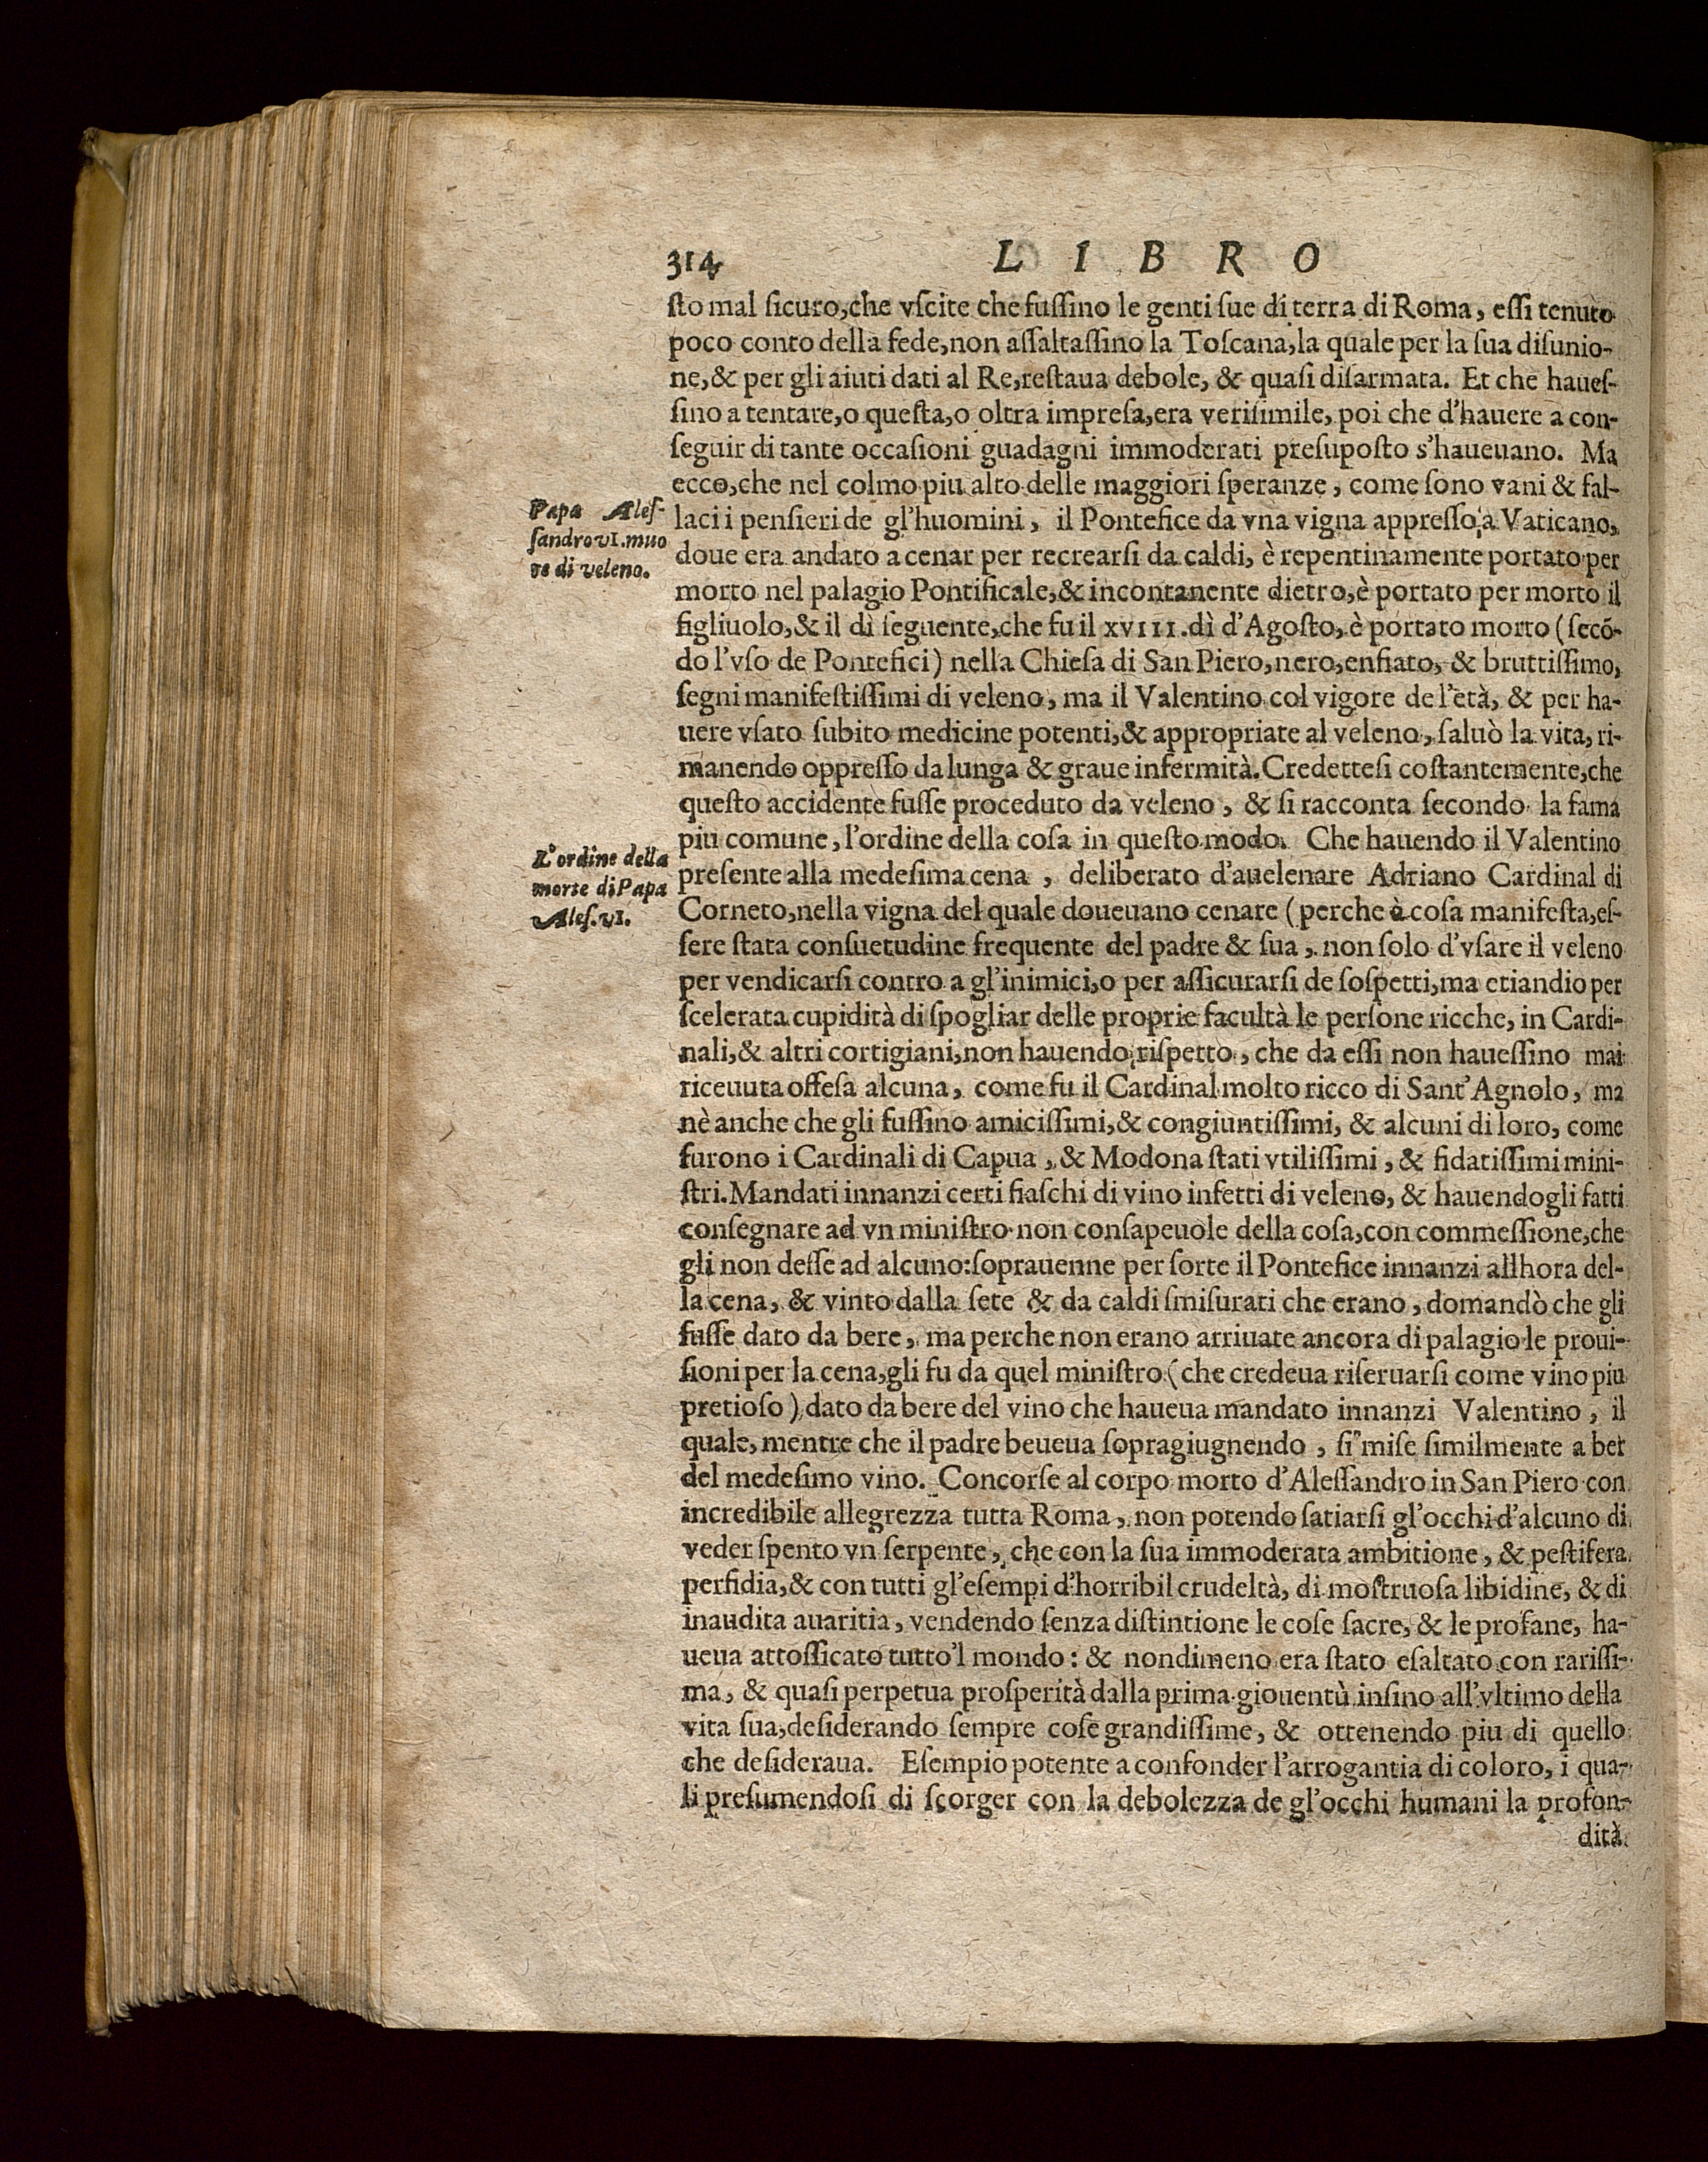 314 LIBRO
ſto mal ſicuro,che vſcite che fuſſino le genti ſue di terra di Roma, eſſi tenuto
poco conto della fede,non aſſaltaſſino la Toſcana,la quale per la ſua diſunio-
ne,& per gli aiuti dati al Re,reſtaua debole, & quaſi diſarmata. Et che haueſ-
ſino a tentare,o queſta,o oltra impreſa,era veriſimile, poi che d'hauere a con-
ſeguir di tante occaſioni guadagni immoderati preſupoſto s'haueuano. Ma
ecco,che nel colmo piu alto delle maggiori ſperanze, come ſono vani & fal-
laci i penſieri de gl'huomini, il Pontefice da vna vigna appreſſo a Vaticano,
doue era andato a cenar per recrearſi da caldi, è repentinamente portato per
morto nel palagio Pontificale,& incontanente dietro,è portato per morto il
figliuolo,& il dì ſeguente,che fu il XVIII.dì d'Agoſto, è portato morto (ſecó-
do l'vſo de Pontefici) nella Chieſa di San Piero,nero,enfiato, & bruttiſſimo,
ſegni manifeſtiſſimi di veleno, ma il Valentino col vigore de l'età, & per ha-
uere vſato ſubito medicine potenti,& appropriate al veleno, ſaluò la vita, ri-
manendo oppreſſo da lunga & graue infermità.Credetteſi coſtantemente,che
queſto accidente fuſſe proceduto da veleno, & ſi racconta ſecondo la fama
piu comune, l'ordine della coſa in queſto modo. Che hauendo il Valentino
preſente alla medeſima cena, deliberato d'auelenare Adriano Cardinal di
Corneto,nella vigna del quale doueuano cenare (perche è coſa manifeſta,eſ-
ſere ſtata conſuetudine frequente del padre & ſua, non ſolo d'vſare il veleno
per vendicarſi contro a gl'inimici,o per aſſicurarſi de ſoſpetti,ma etiandio per
ſcelerata cupidità di ſpogliar delle proprie facultà le perſone ricche, in Cardi-
nali,& altri cortigiani,non hauendo riſpetto, che da eſſi non haueſſino mai
riceuuta offeſa alcuna, come fu il Cardinal molto ricco di Sant'Agnolo, ma
nè anche che gli fuſſino amiciſſimi,& congiuntiſſimi, & alcuni di loro, come
furono i Cardinali di Capua, & Modona ſtati vtiliſſimi, & fidatiſſimi mini-
ſtri.Mandati innanzi certi fiaſchi di vino infetti di veleno, & hauendogli fatti
conſegnare ad vn miniſtro non conſapeuole della coſa,con commeſſione,che
gli non deſſe ad alcuno:ſoprauenne per ſorte il Pontefice innanzi allhora del-
la cena, & vinto dalla ſete & da caldi ſmiſurati che erano, domandò che gli
fuſſe dato da bere, ma perche non erano arriuate ancora di palagio le proui-
ſioni per la cena,gli fu da quel miniſtro (che credeua riſeruarſi come vino piu
pretioſo) dato da bere del vino che haueua mandato innanzi Valentino, il
quale, mentre che il padre beueua ſopragiugnendo, ſi miſe ſimilmente a ber
del medeſimo vino. Concorſe al corpo morto d'Aleſſandro in San Piero con
incredibile allegrezza tutta Roma, non potendo ſatiarſi gl'occhi d'alcuno di
veder ſpento vn ſerpente, che con la ſua immoderata ambitione, & peſtifera
perfidia,& con tutti gl'eſempi d'horribil crudeltà, di moſtruoſa libidine, & di
inaudita auaritia, vendendo ſenza diſtintione le coſe ſacre, & le profane, ha-
ueua attoſſicato tutto'l mondo: & nondimeno era ſtato eſaltato con rariſſi-
ma, & quaſi perpetua proſperità dalla prima giouentù inſino all'vltimo della
vita ſua,deſiderando ſempre coſe grandiſſime, & ottenendo piu di quello
che deſideraua. Eſempio potente a confonder l'arrogantia di coloro, i qua-
li preſumendoſi di ſcorger con la debolezza de gl'occhi humani la profon-
dità
Papa Aleſ-
ſandro VI. muo
re di veleno.
L'ordine della
morte di Papa
Aleſ. VI.